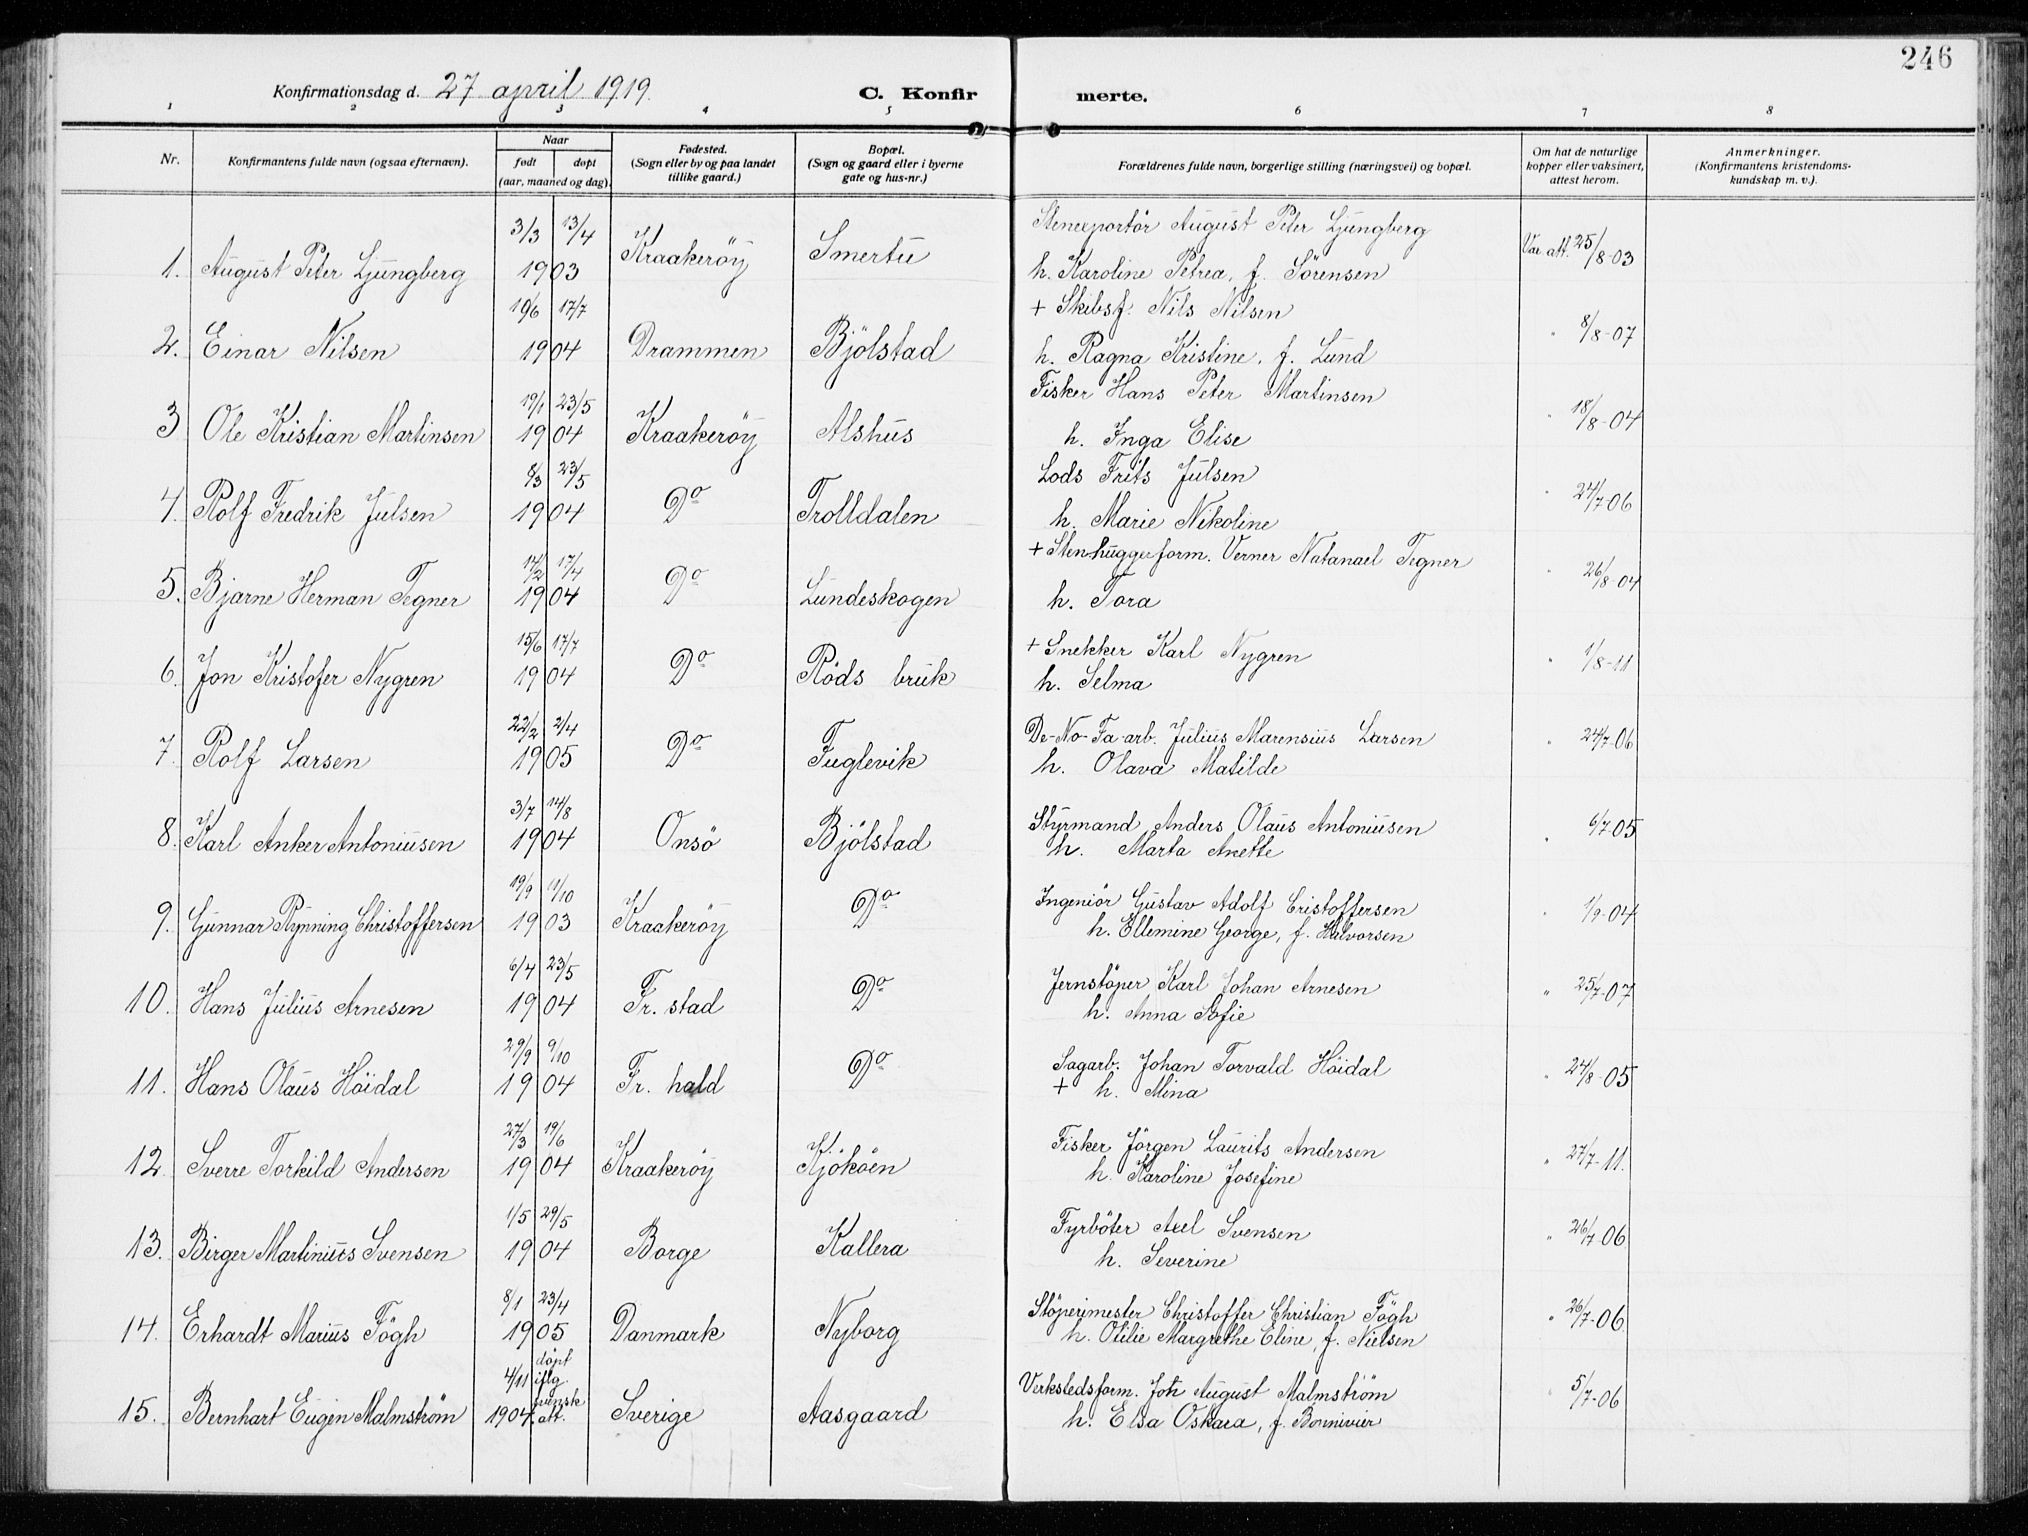 246
Konfirmationsdag d. 27 april 1919.
C. Konfir merte.
1 2 3 4 5 6 7 8
Nr. Konfirmantens fulde navn (ogsaa efternavn). Naar født døpt (aar, maaned og dag). Fødested. (Sogn eller by og paa landet tillike gaard.) Bopæl. (Sogn og gaard eller i byerne gate og hus-nr.) Forældrenes fulde navn, borgerlige stilling (næringsvei) og bopæl. Om hat de naturlige kopper eller vaksinert, attest herom. Anmerkninger. (Konfirmantens kristendoms-kundskap m. v.).
3/3 13/4 Stenexportör August Peter Ljungberg
1. August Peter Ljungberg 1903 Kraakeröy Smertu h. Karoline Petrea, f. Sörensen Vac. att. 25/8-03
19/6 17/7 + Skibsf. Nils Nilsen
2. Einar Nilsen 1904 Drammen Bjölstad h. Ragna Kristine, f. Lund " 8/8-07
19/1 23/5 Fisker Hans Peter Martinsen
3 Ole Kristian Martinsen 1904 Kraakeröy Alshus h. Inga Elise " 18/8-04
8/3 23/5 Lods Frits Julsen
4. Rolf Fredrik Julsen 1904 Do Trolldalen h. Marie Nikoline " 24/7 06
14/2 17/4 + Stenhuggerform. Verner Natanael Tegner
5. Bjarne Herman Tegner 1904 Do Lundeskogen h. Tora " 26/8-04
15/6 17/7 + Snekker Karl Nygren
6. Jon Kristofer Nygren 1904 Do Röds bruk h. Selma " 1/8-11
22/2 2/4 De-No-Fa-arb. Julius Marensius Larsen
7. Rolf Larsen 1905 Do Fuglevik h. Olava Matilde " 24/7-06
3/7 14/8 Styrmand Anders Olaus Antoniusen
8. Karl Anker Antoniusen 1904 Onsö Bjölstad h. Marta Anette " 6/7-05
19/9 1/10 Ingeniör Gustav Adolf Cristoffersen
9. Gunnar Rynning Christoffersen 1903 Kraakeröy Do h. Ellemine George, f. Halvorsen " 1/9-04
6/4 23/5 Jernstöper Karl Johan Arnesen
10. Hans Julius Arnesen 1904 Fr. stad Do h. Anna Sofie " 25/7-07
29/9 9/10 Sagarb. Johan Torvald Höidal
11. Hans Olaus Höidal 1904 Fr. hald Do + h. Mina " 24/8-05
27/3 19/6 Fisker Jörgen Laurits Andersen
12. Sverre Torkild Andersen 1904 Kraakeröy Kjököen h. Karoline Josefine " 27/7-11.
1/5 29/5 Fyrböter Axel Svensen
13. Birger Martinius Svensen 1904 Borge Kallera h. Severine " 26/7-06
8/1 23/4 Stöperimester Christoffer Christian Fögh
14. Erhardt Marius Fögh 1905 Danmark Nyborg h. Otilie Margrethe Eline, f. Nielsen " 26/7-06
4/11 döpt iflg. svensk att. Verkstedsform. Joh August Malmström
15. Bernhart Eugen Malmström 1904. Sverige Aasgaard h. Elsa Oskara, f. Bonnivier " 5/7-06